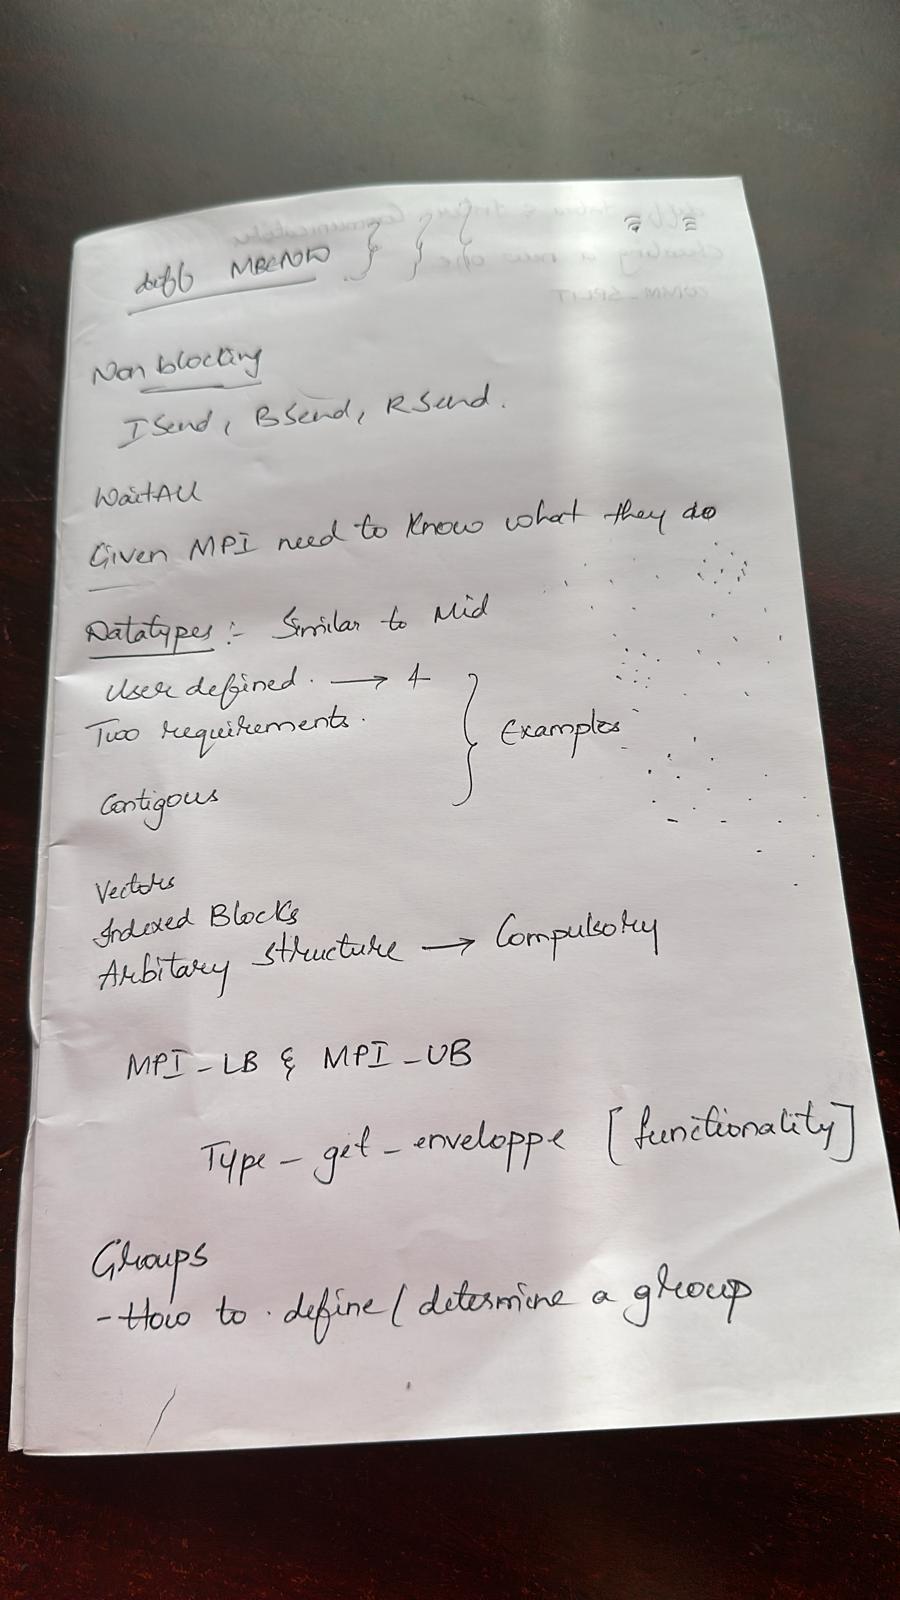 diff
Non blocking
ISend, BSend, RSend.
WaitAll
Given MPI need to know what they do
Datatypes :- Similar to Mid
User defined. → 4
Two requirements.
} Examples
Contigous
Vectors
Indexed Blocks
Arbitary structure → Compulsory
MPI_LB & MPI_UB
Type_get_enveloppe [functionality]
Groups
- How to define / determine a group